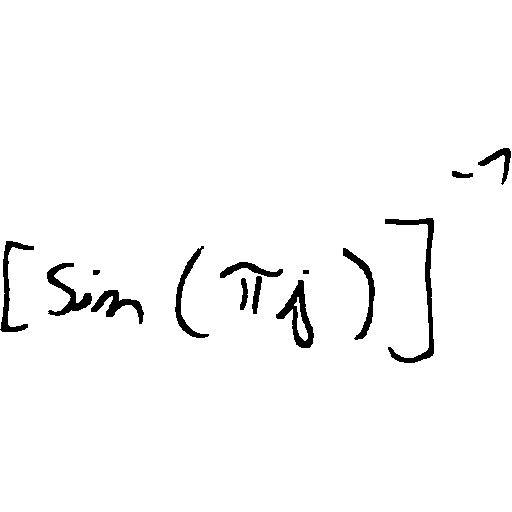 [sin(πj)]^{-1}